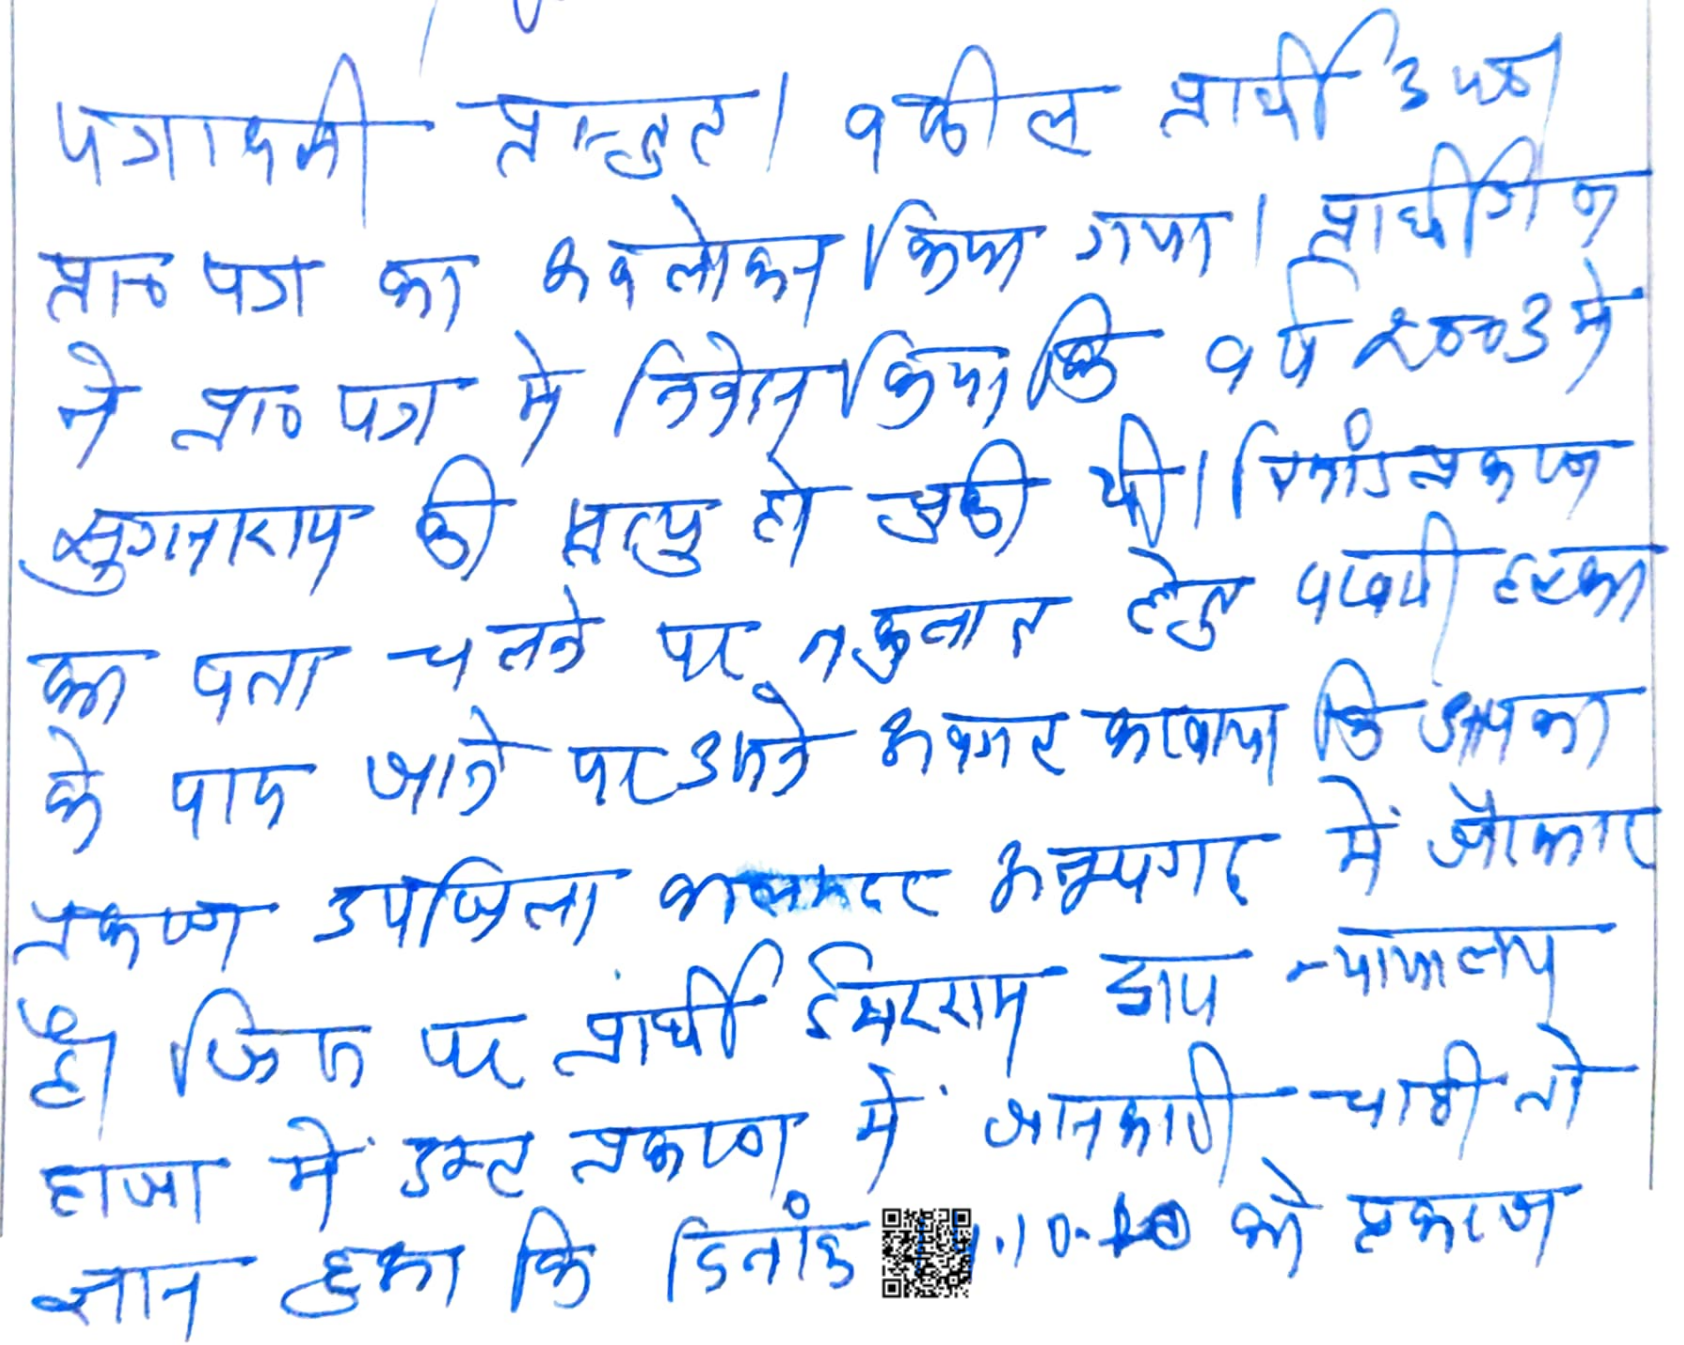 पत्रावली प्रस्तुत। वकील प्रार्थी उप०।
प्रा० पत्र का अवलोकन किया गया। प्रार्थीगण
ने प्रा० पत्र में निवेदन किया कि वर्ष 2003 में
सुगनाराम की मृत्यु हो चुकी थी। रिमांड प्रकरण
का पता चलने पर नकुलात हेतु पटवारी हल्का
के पास जाने पर उसने अवगत करवाया कि आपका
प्रकरण उपजिला कलक्टर अनूपगढ़ में
है। जिस पर प्रार्थी ईसरराम द्वारा न्यायालय
हाजा में उक्त प्रकरण में जानकारी चाही तो
ज्ञात हुआ कि दिनांक .10. को प्रकरण